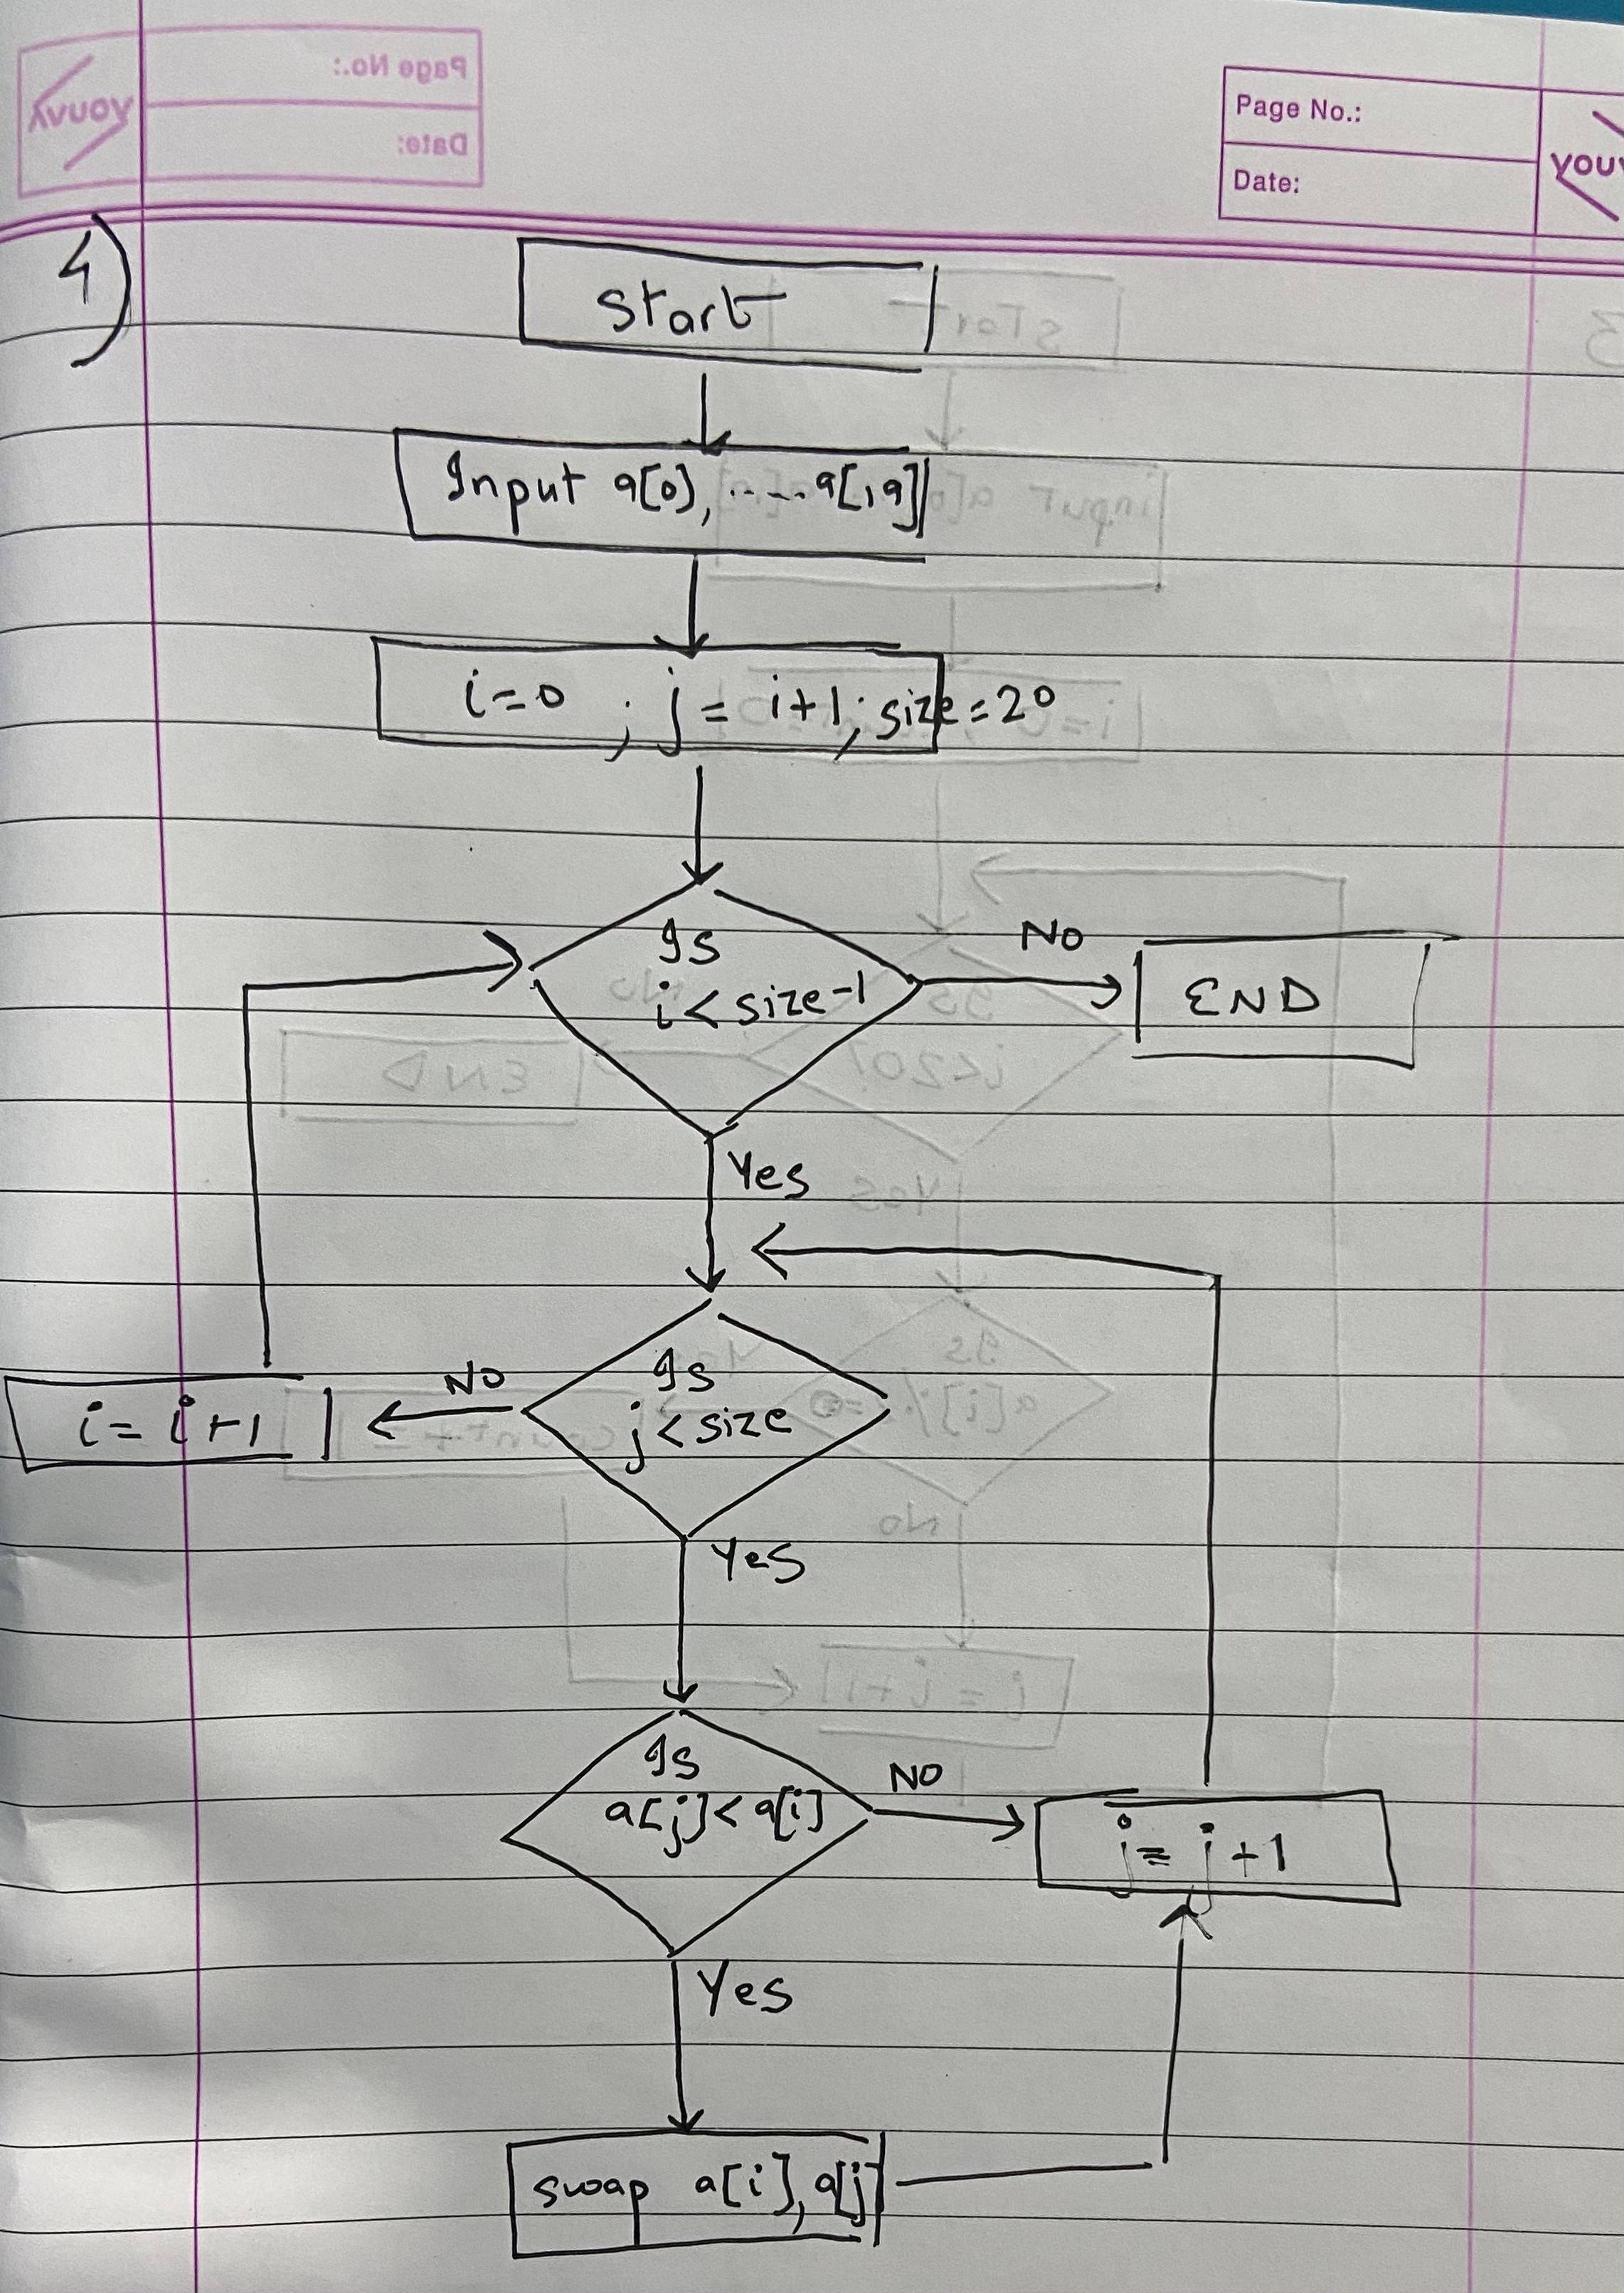 Page No.:
Date:
youv
4)
start
Input a[0], ..... a[19]
i=0 ; j = i+1; size=20
Is
i < size-1
NO
END
Yes
Is
j < size
NO
i = i+1
Yes
Is
a[j] < a[i]
NO
j = j+1
Yes
swap a[i], a[j]